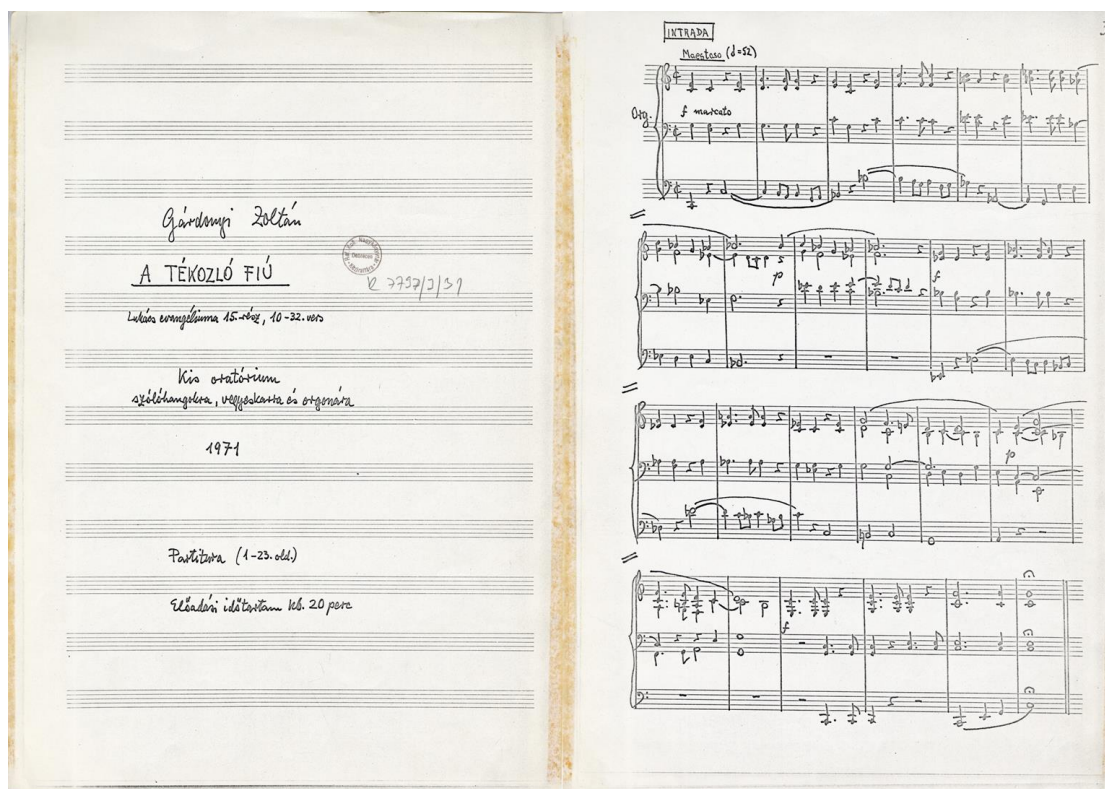 Gárdonyi Zoltán
A TÉKOZLÓ FIÚ
R 7797/J/31
Lukács evangéliuma 15. rész, 10-32. vers
Kis oratórium
szólóhangokra, vegyeskarra és orgonára
1971
Partitura (1-23. old.)
Előadási időtartam kb. 20 perc
INTRADA
Maestoso (𝅗𝅥=52)
Org.
f marcato
p
f
p
f